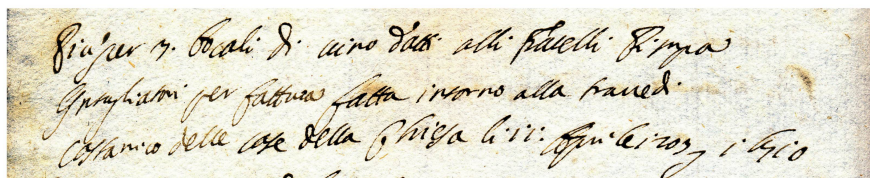 Più per n. bocali di vino datti alli fratelli Pippa
Intagliatori per fattura fatta intorno alla trave di
costamo delle case della Chiesa li 11: Aprile 1703